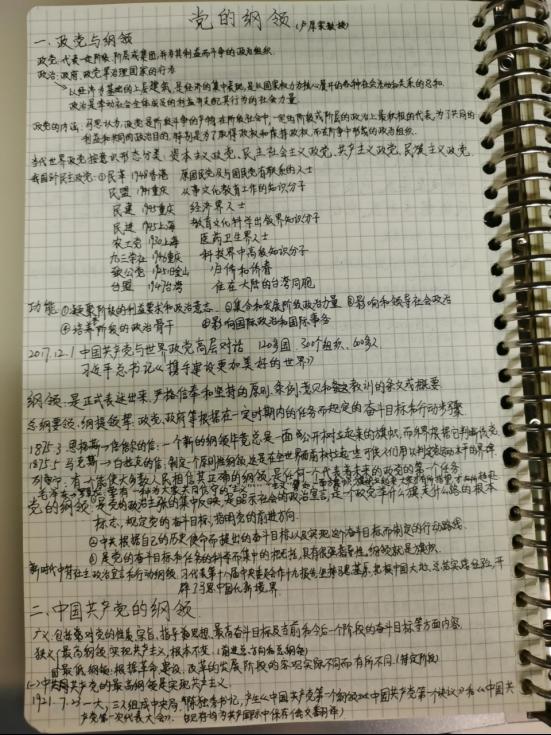 党的纲领 (卢辱实教授)
一、政党与纲领
政党:代表一定阶级、阶层或集团,并为其利益而斗争的政治组织.
政治:政府、政党等治理国家的行为
以经济为基础的上层建筑,是经济的集中表现,是以国家权力为核心展开的各种社会活动和关系的总和.
政治是牵动社会全体成员的利益并支配其行为的社会力量.
政党的内涵:马恩认为,政党是阶级斗争的产物,在阶级社会中,一定的阶级或阶层的政治上最积极的代表,为了共同的
利益和共同的政治目的,特别是为了取得政权和保持政权,而在斗争中形成的政治组织.
当代世界政党按意识形态分类:资本主义政党、民主社会主义政党、共产主义政党、民族主义政党.
我国8个民主政党:①民革 1948香港 原国民党及与国民党有联系的人士
民盟 1941重庆 从事文化教育工作的知识分子
民建 1945重庆 经济界人士
民进 1945上海 教育文化科学出版界知识分子
农工党 1930上海 医药卫生界人士
九三学社 1946重庆 科技界中高级知识分子
致公党 1925旧金山 归侨和侨眷
台盟 1947台湾 住在大陆的台湾同胞
功能 ①凝聚阶级的利益要求和政治意志 ②集合和发展阶级政治力量 ③影响和领导社会政治
④培养阶级的政治骨干 ⑤影响国际政治和国际事务
2017.12.1 中国共产党与世界政党高层对话 120多国,300个组织,600多人
习近平总书记《携手建设更加美好的世界》
纲领:是正式表述出来,严格信奉和坚持的原则、条例、意见和教训的条文或概要.
总纲要领,纲提领挈,政党、政府等根据在一定时期内的任务而规定的奋斗目标和行动步骤.
1875.3 恩格斯→倍倍尔的信:一个新的纲领毕竟总是一面公开树立起来的旗帜,而外界根据它判断该党.
1875.5 马克思→白拉克的信:制定一个原则性纲领,这是在全世界面前树立起
列宁:有一个能使大多数人民相信其正确的纲领,是任何一个代表着未来的政党的第一个任务.
党的纲领 ①是党的政治主张的集中反映,是昭示社会的政治宣言,是一个政党举什么旗走什么路的根本
标志,规定党的奋斗目标,指明党的前进方向.
②中共根据自己的历史使命而提出的奋斗目标以及实现这个奋斗目标而制定的行动路线.
③是党的奋斗目标和任务的科学而集中的概括,具有很强号召性,纲领就是旗帜.
新时代中特社主政治宣言和行动纲领:习代表第十八届中央委员会作十九报告,坚持马基原,扎根中国大地,总结实践经验,开
辟了马思中国化新境界.
二、中国共产党的纲领
广义:包括党对党的性质、宗旨、指导思想、最高奋斗目标及当前和今后一个阶段的奋斗目标等方面内容.
狭义①最高纲领:实现共产主义,根本不变.(前进总方向和总纲领)
②最低纲领:根据革命、建设、改革的发展阶段的客观实际不同而有所不同.(特定阶段)
(一)中国共产党的最高纲领是实现共产主义.
1921.7.23一大,三人组成中央局,陈独秀书记,产生《中国共产党第一个纲领》《中国共产党第一个决议》《中国共
产党第一次代表大会》.